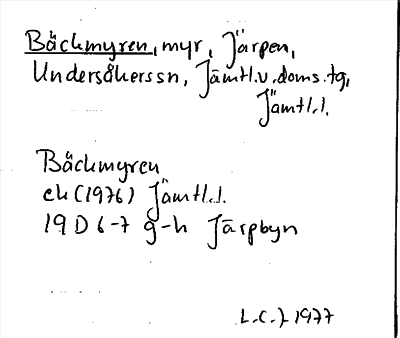 Bäckmyren, myr, Järpen,
Undersåkerssn, Jämtl.v.doms.tg,
Jämtl.l.
Bäckmyren
ek (1976) Jämtl.l.
19 D 6-7 g-h Järpbyn
L.C.J. 1977